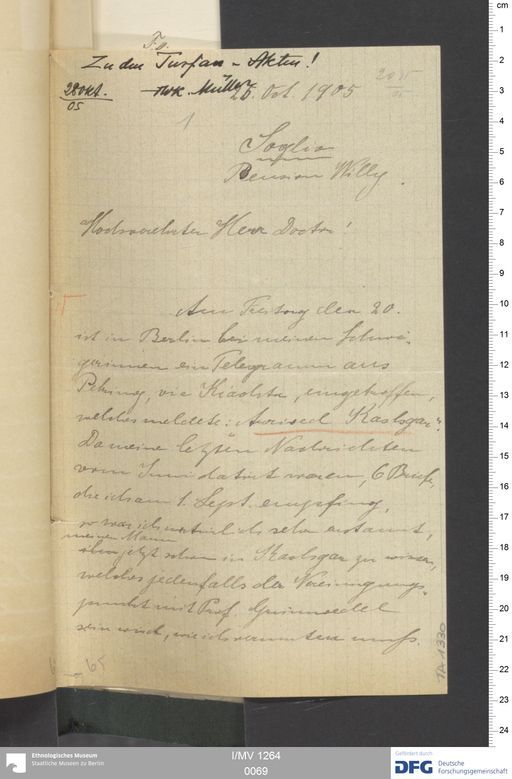 F.a.
Zu den Turfan-Akten!
28 Okt.
05
Müller
25. Oct. 1905
1
Soglio
Pension Willy.
Hochverehrter Herr Doctor!
Am Freitag den 20.
ist in Berlin bei meinen Schwä-
gerinnen ein Telegramm aus
Peking, via Kiachta, eingetroffen,
welches meldete: "Arrived Kashgar".
Da meine letzten Nachrichten
vom Juni datirt waren, 6 Briefe,
die ich am 1. Sept. empfing,
so war ich natürlich sehr erstaunt,
meinen Mann
schon jetzt in Kashgar zu wissen,
welches jedenfalls der Vereinigungs-
punkt mit Prof. Gruenwedel
sein wird, wie ich vermuten muss.
65
IA 1330
cm
1
2
3
4
5
6
7
8
9
10
11
12
13
14
15
16
17
18
19
20
21
22
23
24
Ethnologisches Museum
Staatliche Museen zu Berlin
I/MV 1264
0069
Gefördert durch
DFG Deutsche
Forschungsgemeinschaft